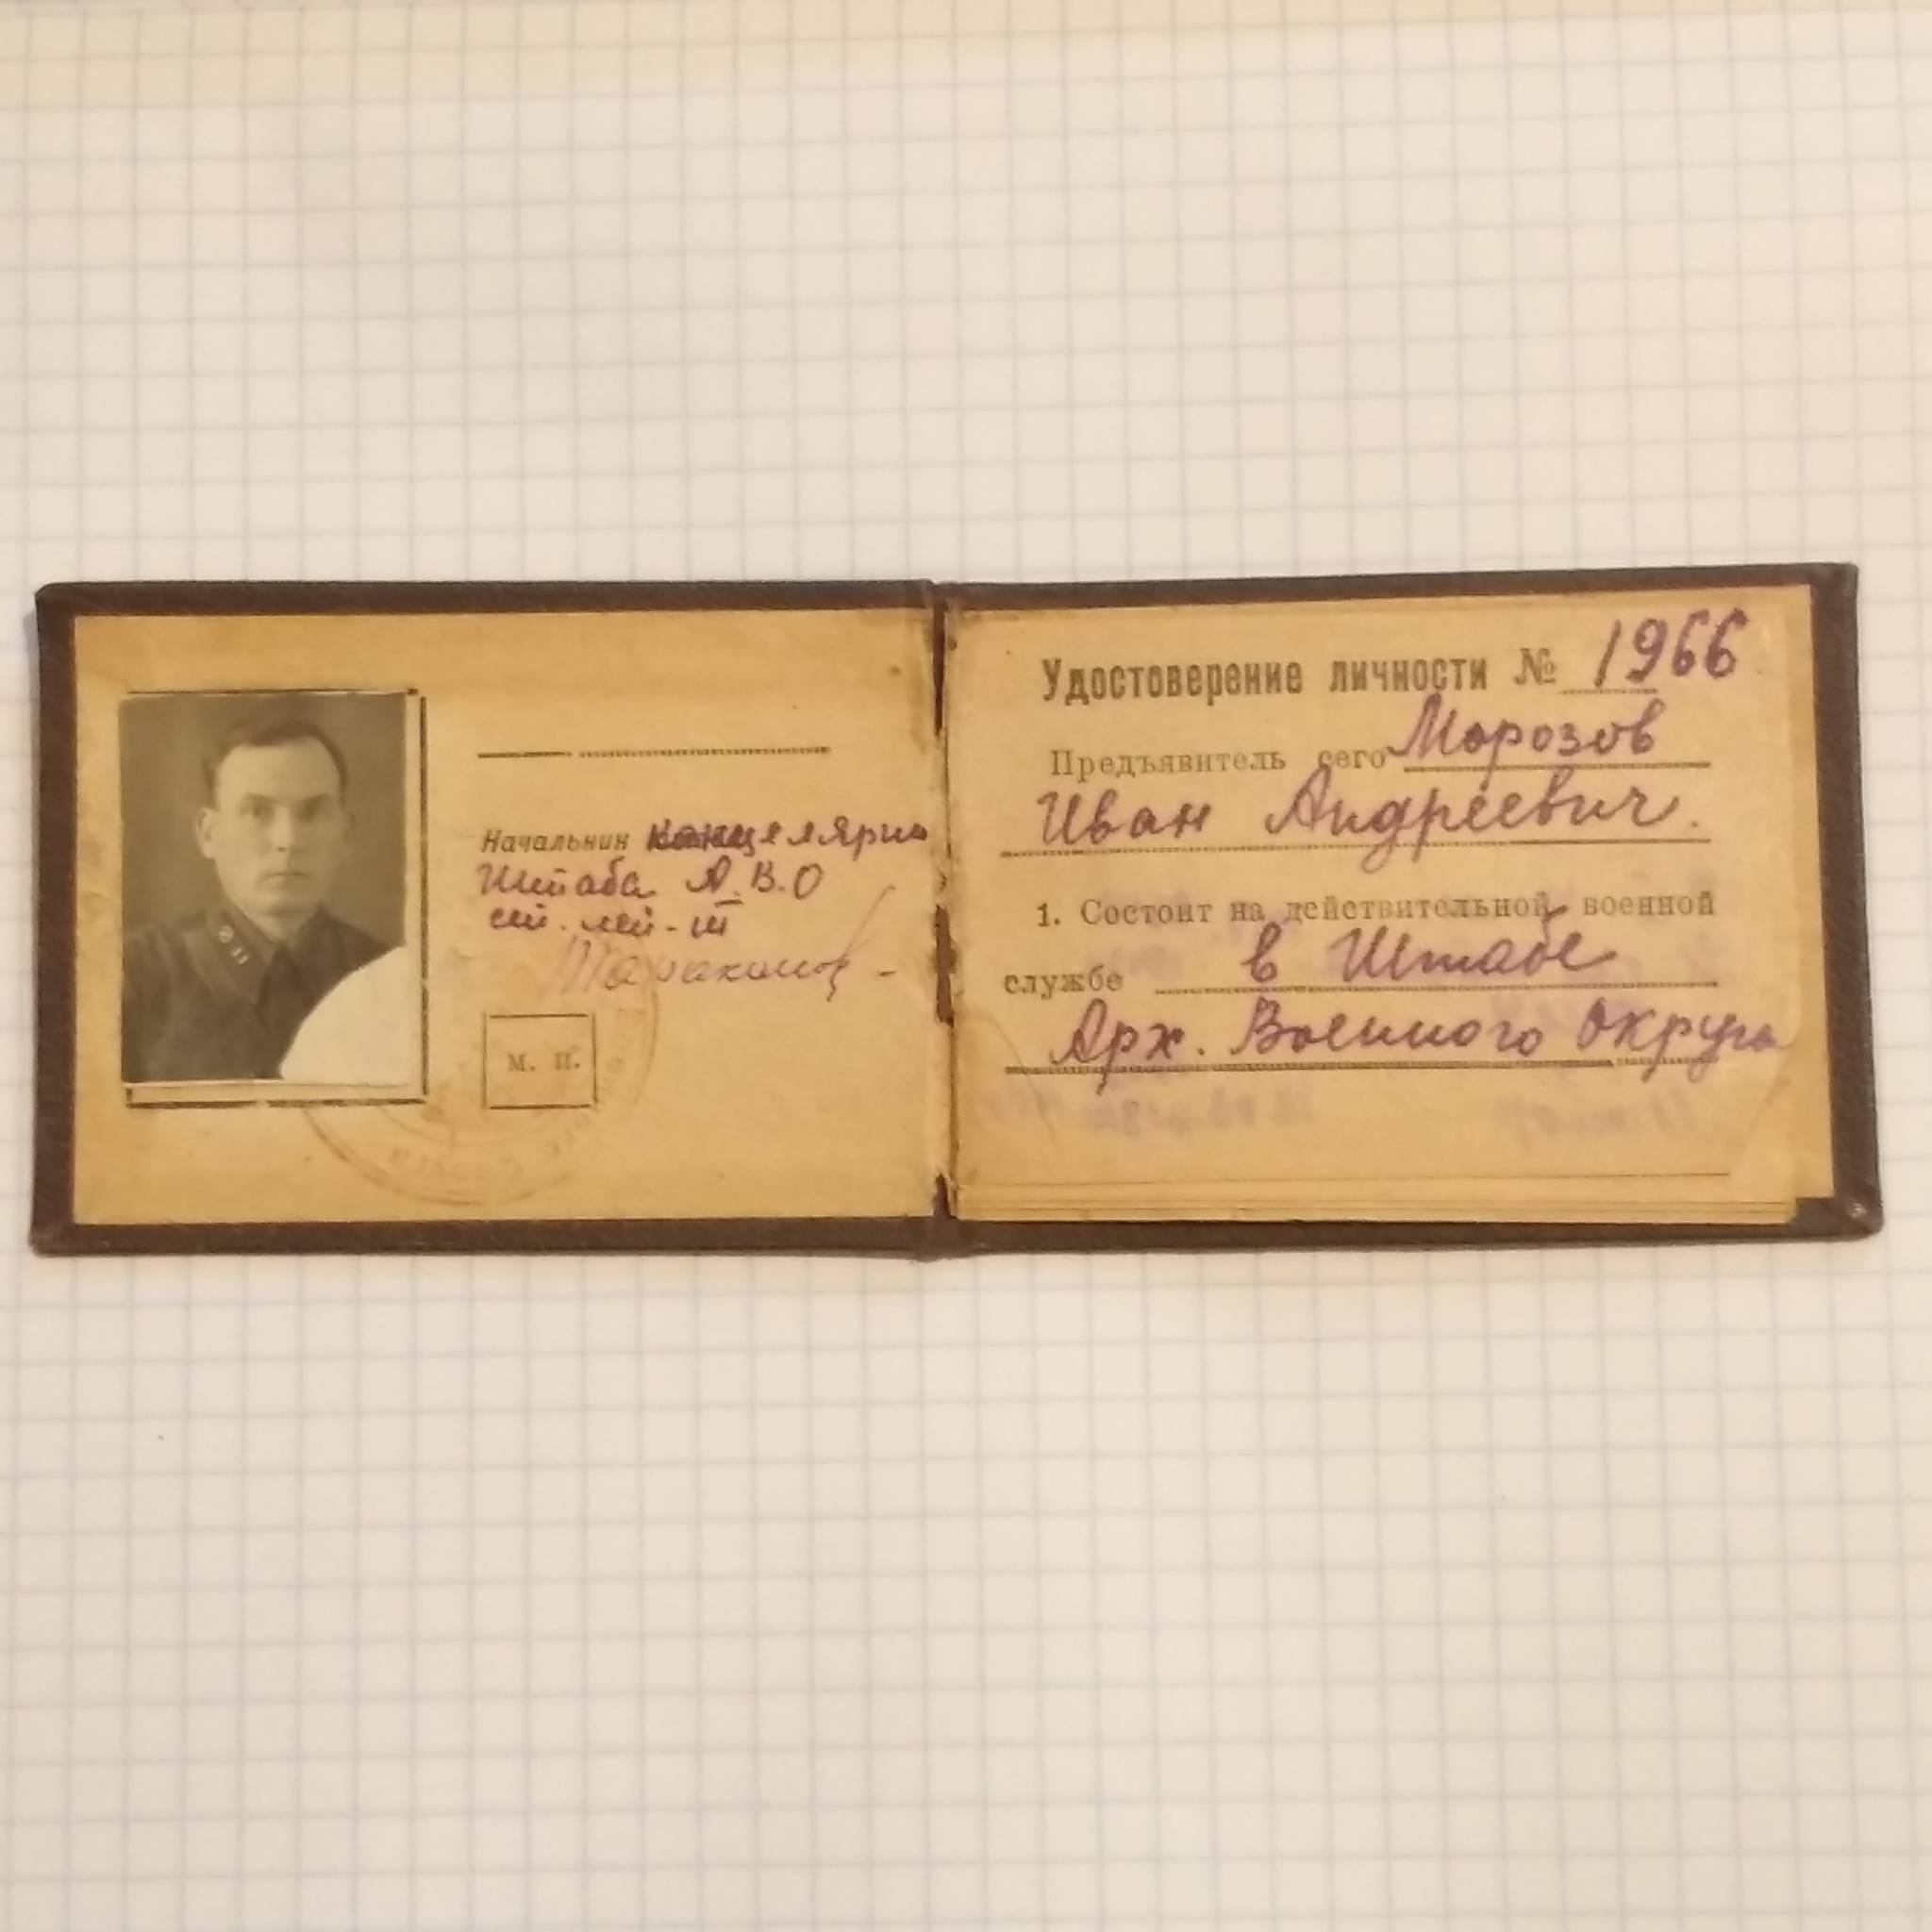 Начальник канцелярии
Штаба А.В.О
ст. лей-т
М. П.
Удостоверение личности № 1966
Предъявитель сего Морозов
Иван Андреевич.
1. Состоит на действительной военной
службе в Штабе
Арх. Военного Округа